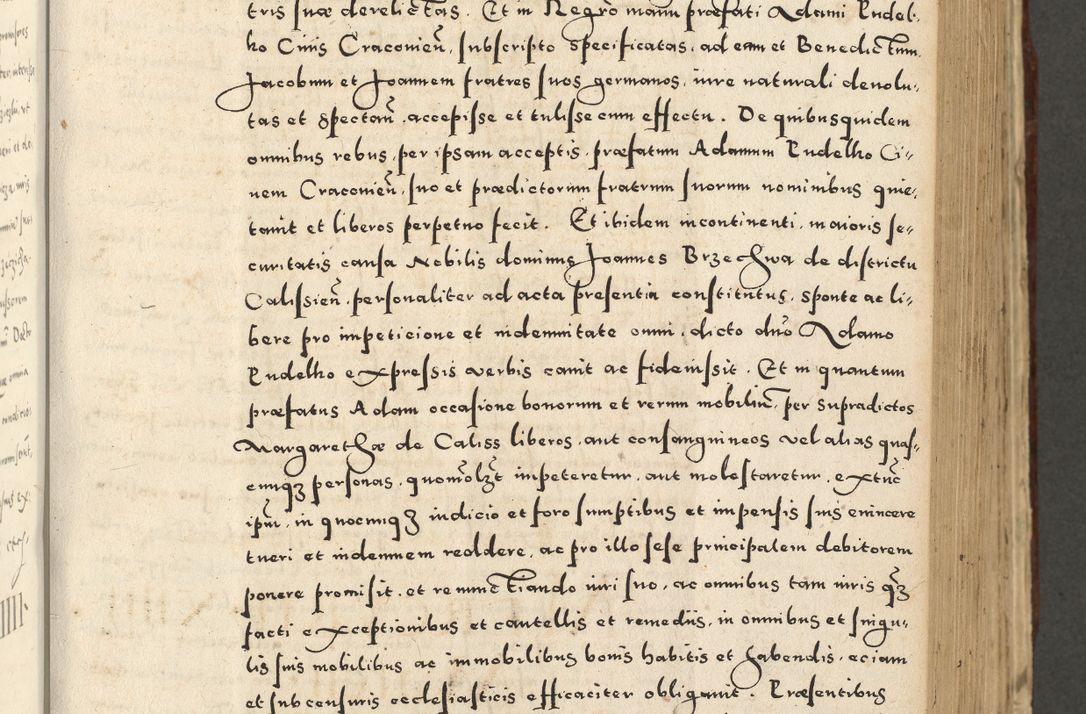 tris suæ derelictas. Et in Regro manu præfati Adami Pudel-
ho Civis Craconien̄, subscripto specificatas, ad eam et Benedictum,
Jacobum et Joannem fratres suos germanos, iure naturali devolu-
tas et spectan̄, accepisse et tulisse cum effectu. De quibusquidem
omnibus rebus, per ipsam acceptis, præfatum Adamum Pudelho Ci-
vem Craconien̄, suo et prædictorum fratrum suorum nominibus quie-
tavit et liberos perpetuo fecit. Et ibidem incontinenti, maioris se-
curitatis causa Nobilis dominus Joannes Brzechwa de districtu
Calissien̄, personaliter ad acta presentia constitutus, sponte ac li-
bere pro impeticione et indemnitate omni, dicto dn̄o Adamo
Pudelho expressis verbis cavit ac fideiussit. Et in quantum
præfatus Adam occasione bonorum et rerum mobiliū, per supradictos
Margarethæ de Caliss liberos, aut consanguineos vel alias quas-
cunqȝ personas, quomōlȝt impeteretur, aut molestaretur, extūc
ipūm, in quocunqȝ iudicio et foro sumptibus et impensis suis evincere
tueri et indemnem reddere, ac pro illo sese principalem debitorem
ponere promisit, et renunctiando iuri suo, ac omnibus tam iuris qȝ
facti exceptionibus et cautellis et remediis, in omnibus et singu-
lis suis mobilibus ac immobilibus bonis habitis et habendis, eciam
et sub censuris ecclesiasticis efficaciter obligavit. Præsentibus